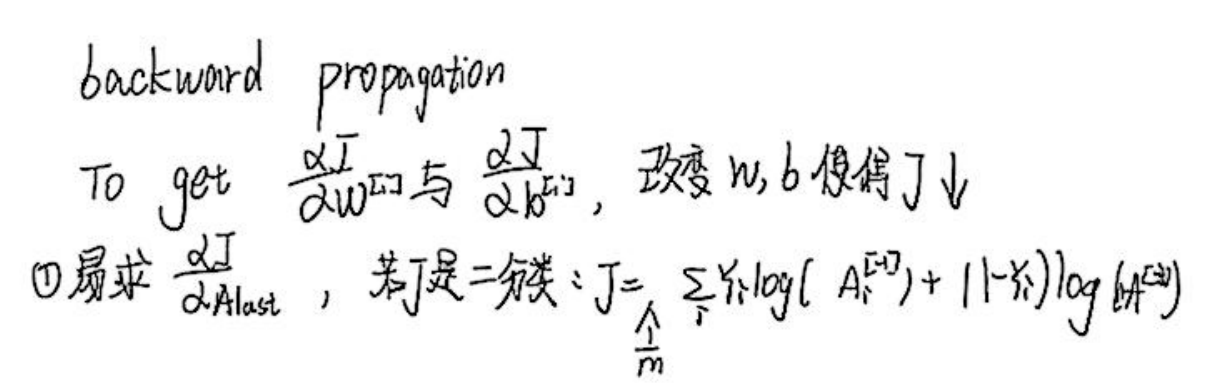 backward propagation
To get αJ/αW^[i] 与 αJ/αb^[i], 改变 w, b 使得 J ↓
① 易求 αJ/αAlast, 若J是二分类: J = 1/m Σ_i Y_i log( A_i^[-1]) + (1-Y_i) log (1-A^[-1])